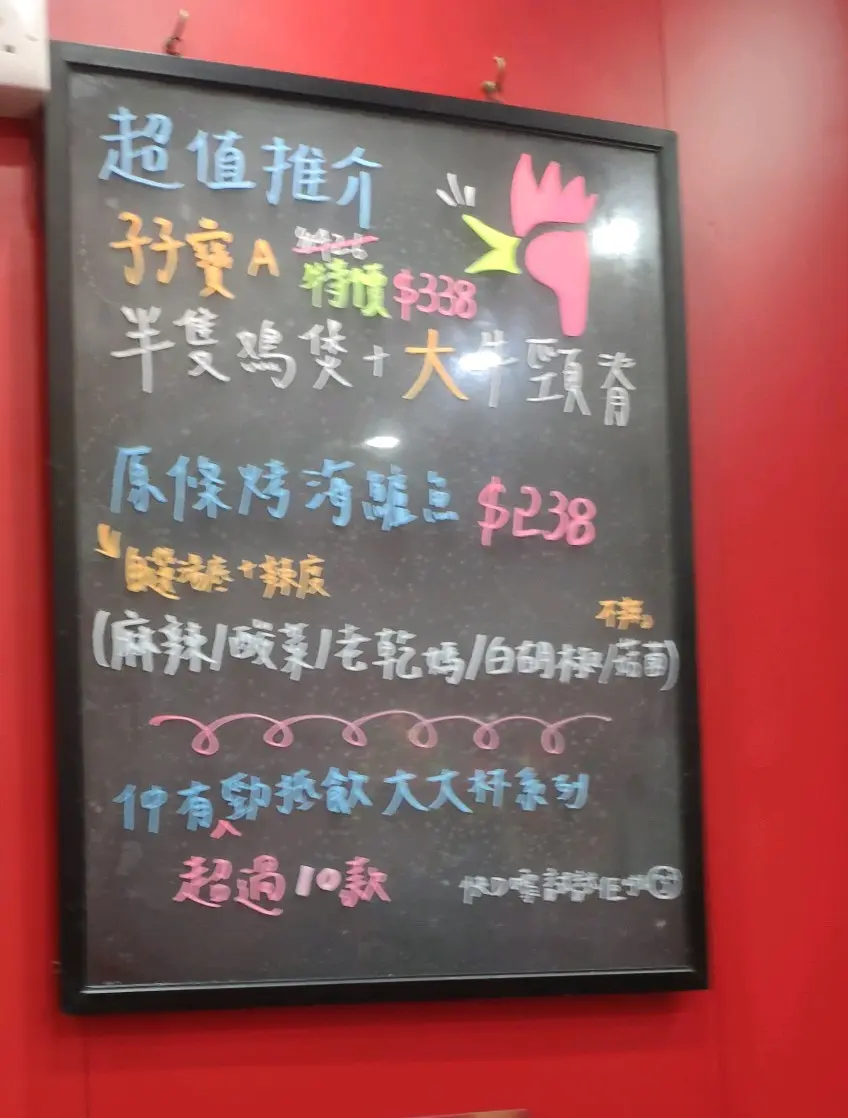 超值推介
孖寶A $428
特價 $338
半隻鷄煲+大牛頸脊
原條烤海鱸魚 $238
自選湯底+辣度
不辣。
(麻辣/酸菜/老乾媽/白胡椒/菇菌)
仲有勁抵飲大大杯系列
超過10款
快D嚟試試佢哋